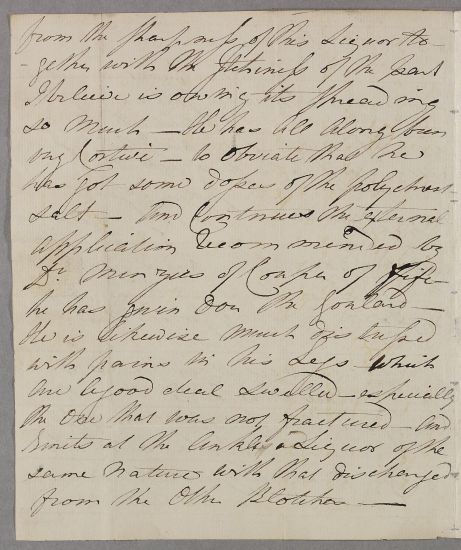 from the sharpness of this Liquor to-
-gether with the Itchiness of the part
I believe is owing its spreading
so much — He has all along been
very Costive — to obviate that he
has got some doses of the polychrest
salt — and Continues the external
application recommended by
Dr. Menzies of Coupar of Fife
he has given over the Goulard —
He is likewise much distressed
with pains in his Legs which
are a good deal swelled — especially
the One that was not fractured — and
Emits at the Ankle a Liquor of the
same Nature with that discharged
from the Other Blotches —